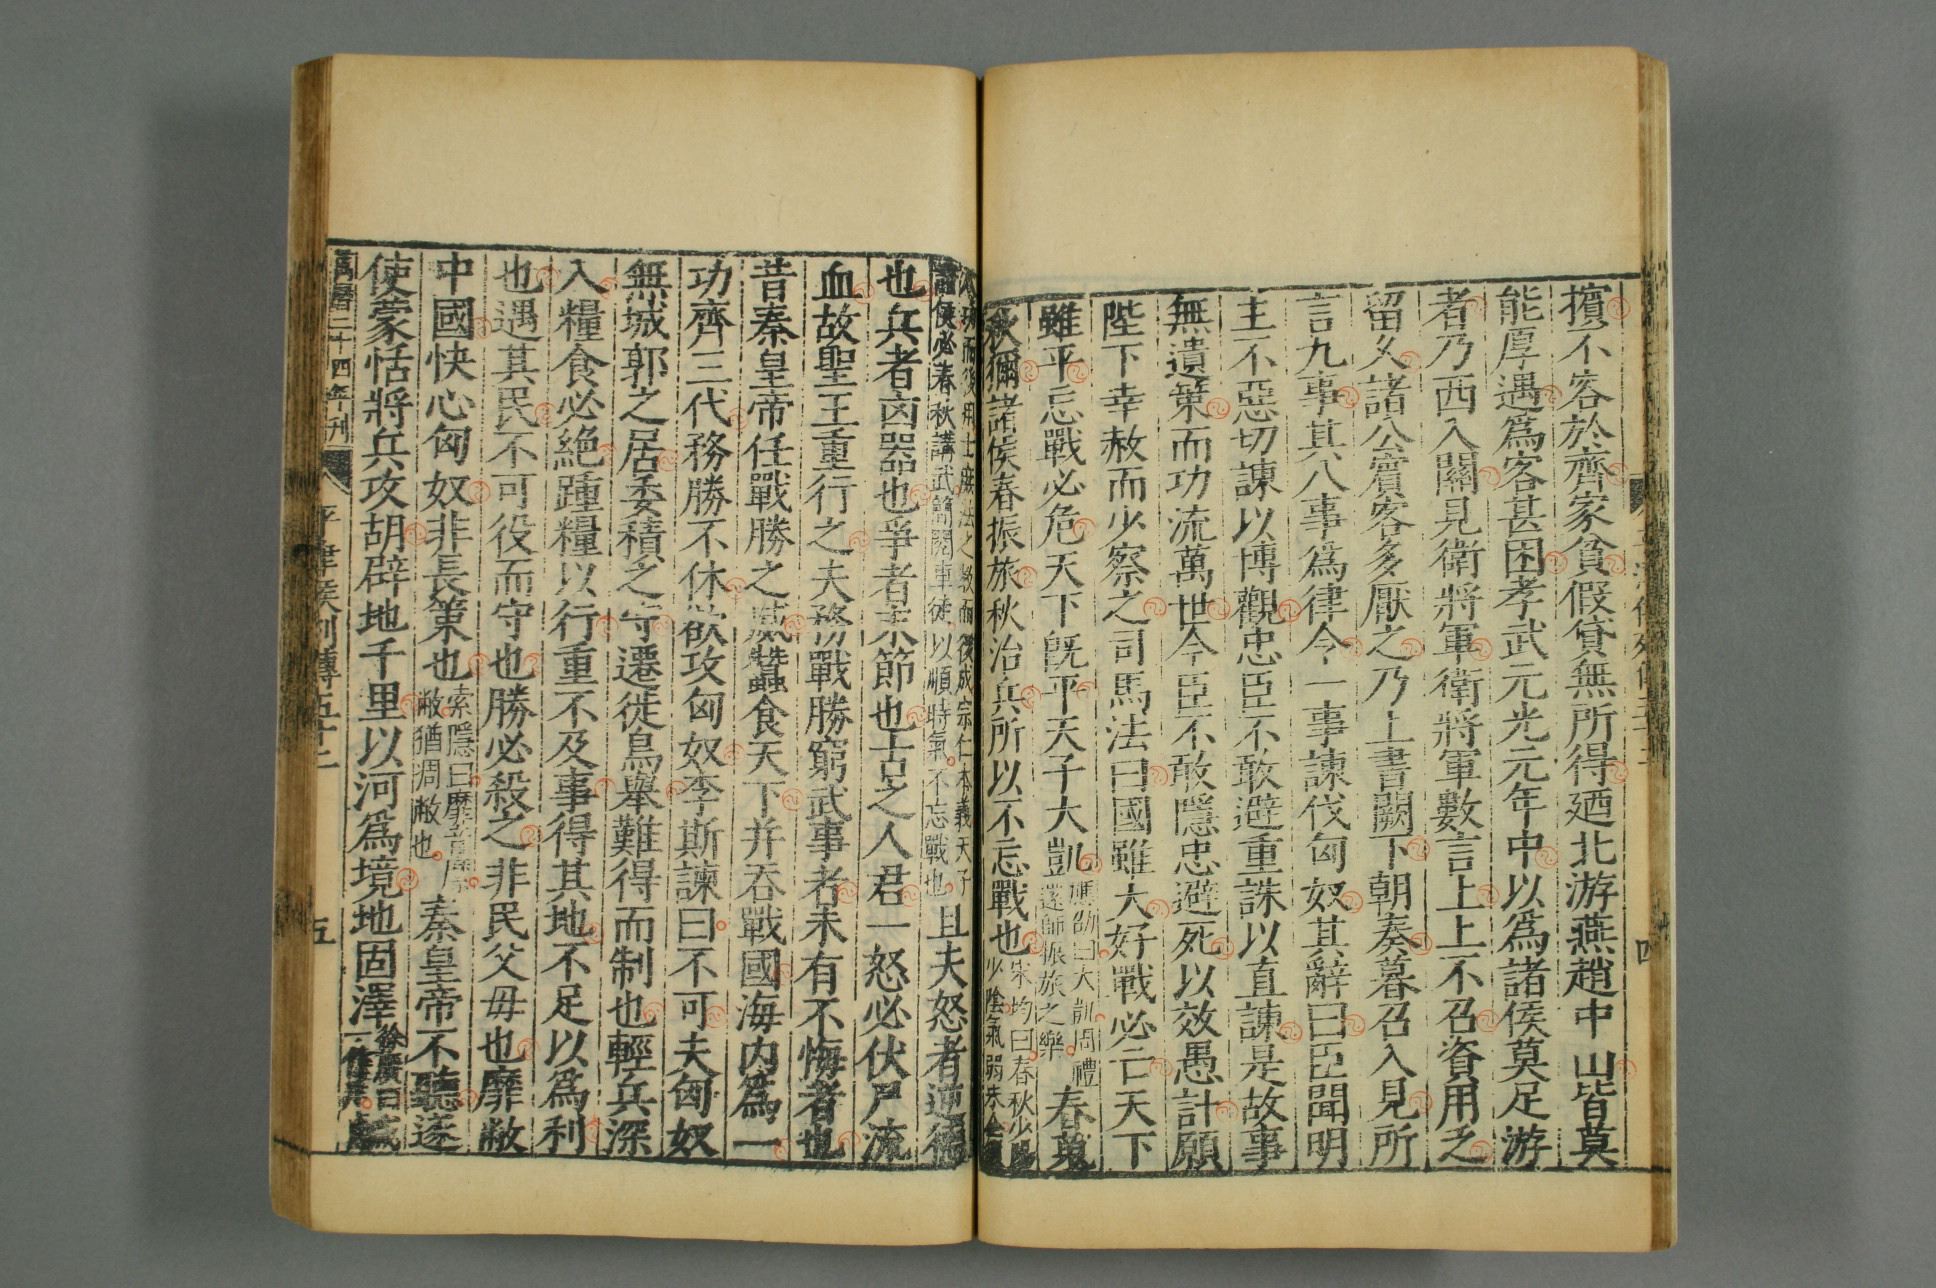 擯不容於齊家貧假貸無所得廼北游燕趙中山皆莫
能厚遇爲客甚困孝武元光元年中以爲諸侯莫足游
者乃西入關見衛將軍衛將軍數言上上不召資用乏
留久諸公賓客多厭之乃上書闕下朝奏暮召入見所
言九事其八事爲律令一事諫伐匈奴其辭曰臣聞明
主不惡切諫以博觀忠臣不敢避重誅以直諫是故事
無遺策而功流萬世今臣不敢隱忠避死以效愚計願
陛下幸赦而少察之司馬法曰國雖大好戰必亡天下
雖平忘戰必危天下既平天子大凱應劭曰大凱周禮還師振旅之樂春蒐
秋獮諸侯春振旅秋治兵所以不忘戰也宋均曰春秋少陽少陰氣弱未全
而後用士庶法之教而後成宗仁本義天子
諸侯必春秋講武簡閱車徒以順時氣不忘戰也且夫怒者逆德
也兵者凶器也爭者末節也古之人君一怒必伏尸流
血故聖王重行之夫務戰勝窮武事者未有不悔者也
昔秦皇帝任戰勝之威蠶食天下并吞戰國海内爲一
功齊三代務勝不休欲攻匈奴李斯諫曰不可夫匈奴
無城郭之居委積之守遷徙鳥舉難得而制也輕兵深
入糧食必絶踵糧以行重不及事得其地不足以爲利
也遇其民不可役而守也勝必殺之非民父毋也靡敝
中國快心匈奴非長策也索隱曰靡音糜敝猶凋敝也秦皇帝不聽遂
使蒙恬將兵攻胡辟地千里以河爲境地固澤徐廣曰
萬曆二十四年刊
平津侯列傳五十二
五
四